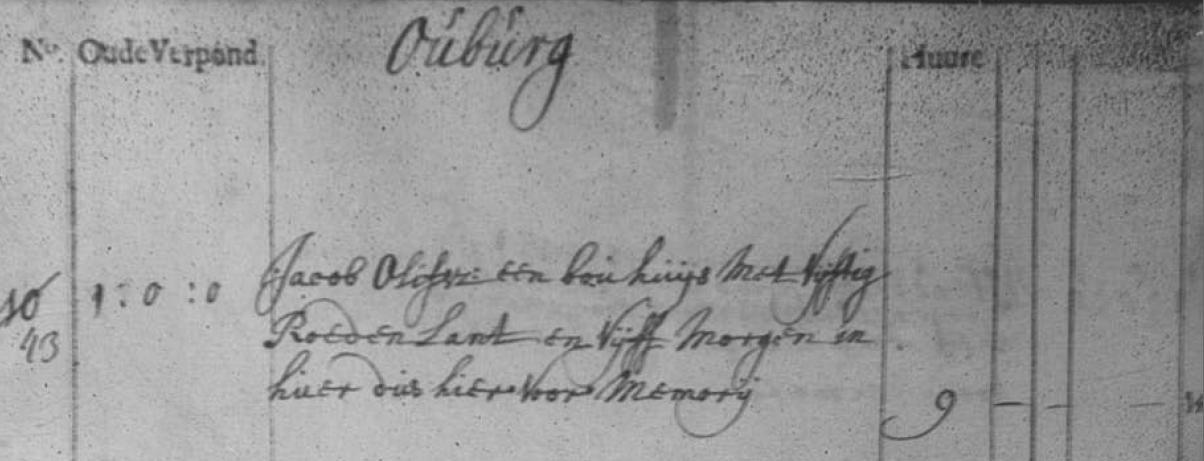 No. Oude Verpond. Ouburg Huure
1 : 0 : 0 Jacob een bou huijs Met Vijftig
43 Roeden Lant en Vijff Morgen in
huer dus hier voor Memorij 9 — — —